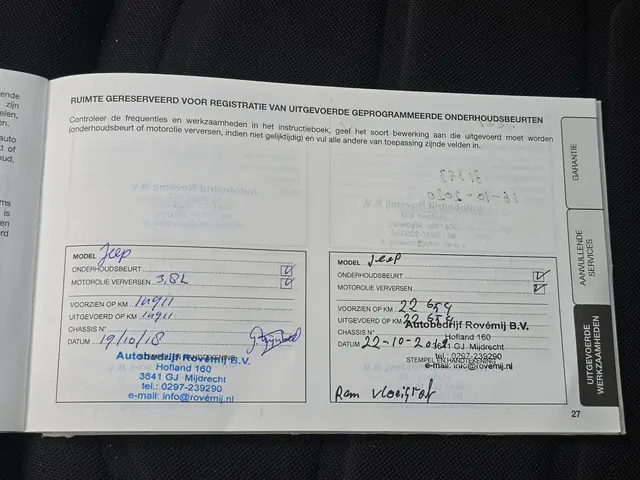 ende
zijn
elen,
on.
auto
t of
oud,
ms
is
en
rd
RUIMTE GERESERVEERD VOOR REGISTRATIE VAN UITGEVOERDE GEPROGRAMMEERDE ONDERHOUDSBEURTEN
Controleer de frequenties en werkzaamheden in het instructieboek, geef het soort bewerking aan die uitgevoerd moet worden
(onderhoudsbeurt of motorolie verversen, indien niet gelijktijdig) en vul alle andere van toepassing zijnde velden in.
MODEL Jeep
ONDERHOUDSBEURT
MOTOROLIE VERVERSEN 3,8L
VOORZIEN OP KM
UITGEVOERD OP KM
CHASSIS N°
DATUM 19/10/18
STEMPEL EN HANDTEKENING
Autobedrijf Rovémij B.V.
Hofland 160
3641 GJ Mijdrecht
tel.: 0297-239290
e-mail: info@rovémij.nl
MODEL Jeep
ONDERHOUDSBEURT
MOTOROLIE VERVERSEN
VOORZIEN OP KM 22 654
UITGEVOERD OP KM 22 654
Autobedrijf Rovémij B.V.
CHASSIS N°
Hofland 160
DATUM 22-10-
3641 GJ Mijdrecht
STEMPEL EN HANDTEKENING
tel.: 0297-239290
e-mail: info@rovémij.nl
Rem vloeistof
27
GARANTIE
AANVULLENDE
SERVICES
UITGEVOERDE
WERKZAAMHEDEN